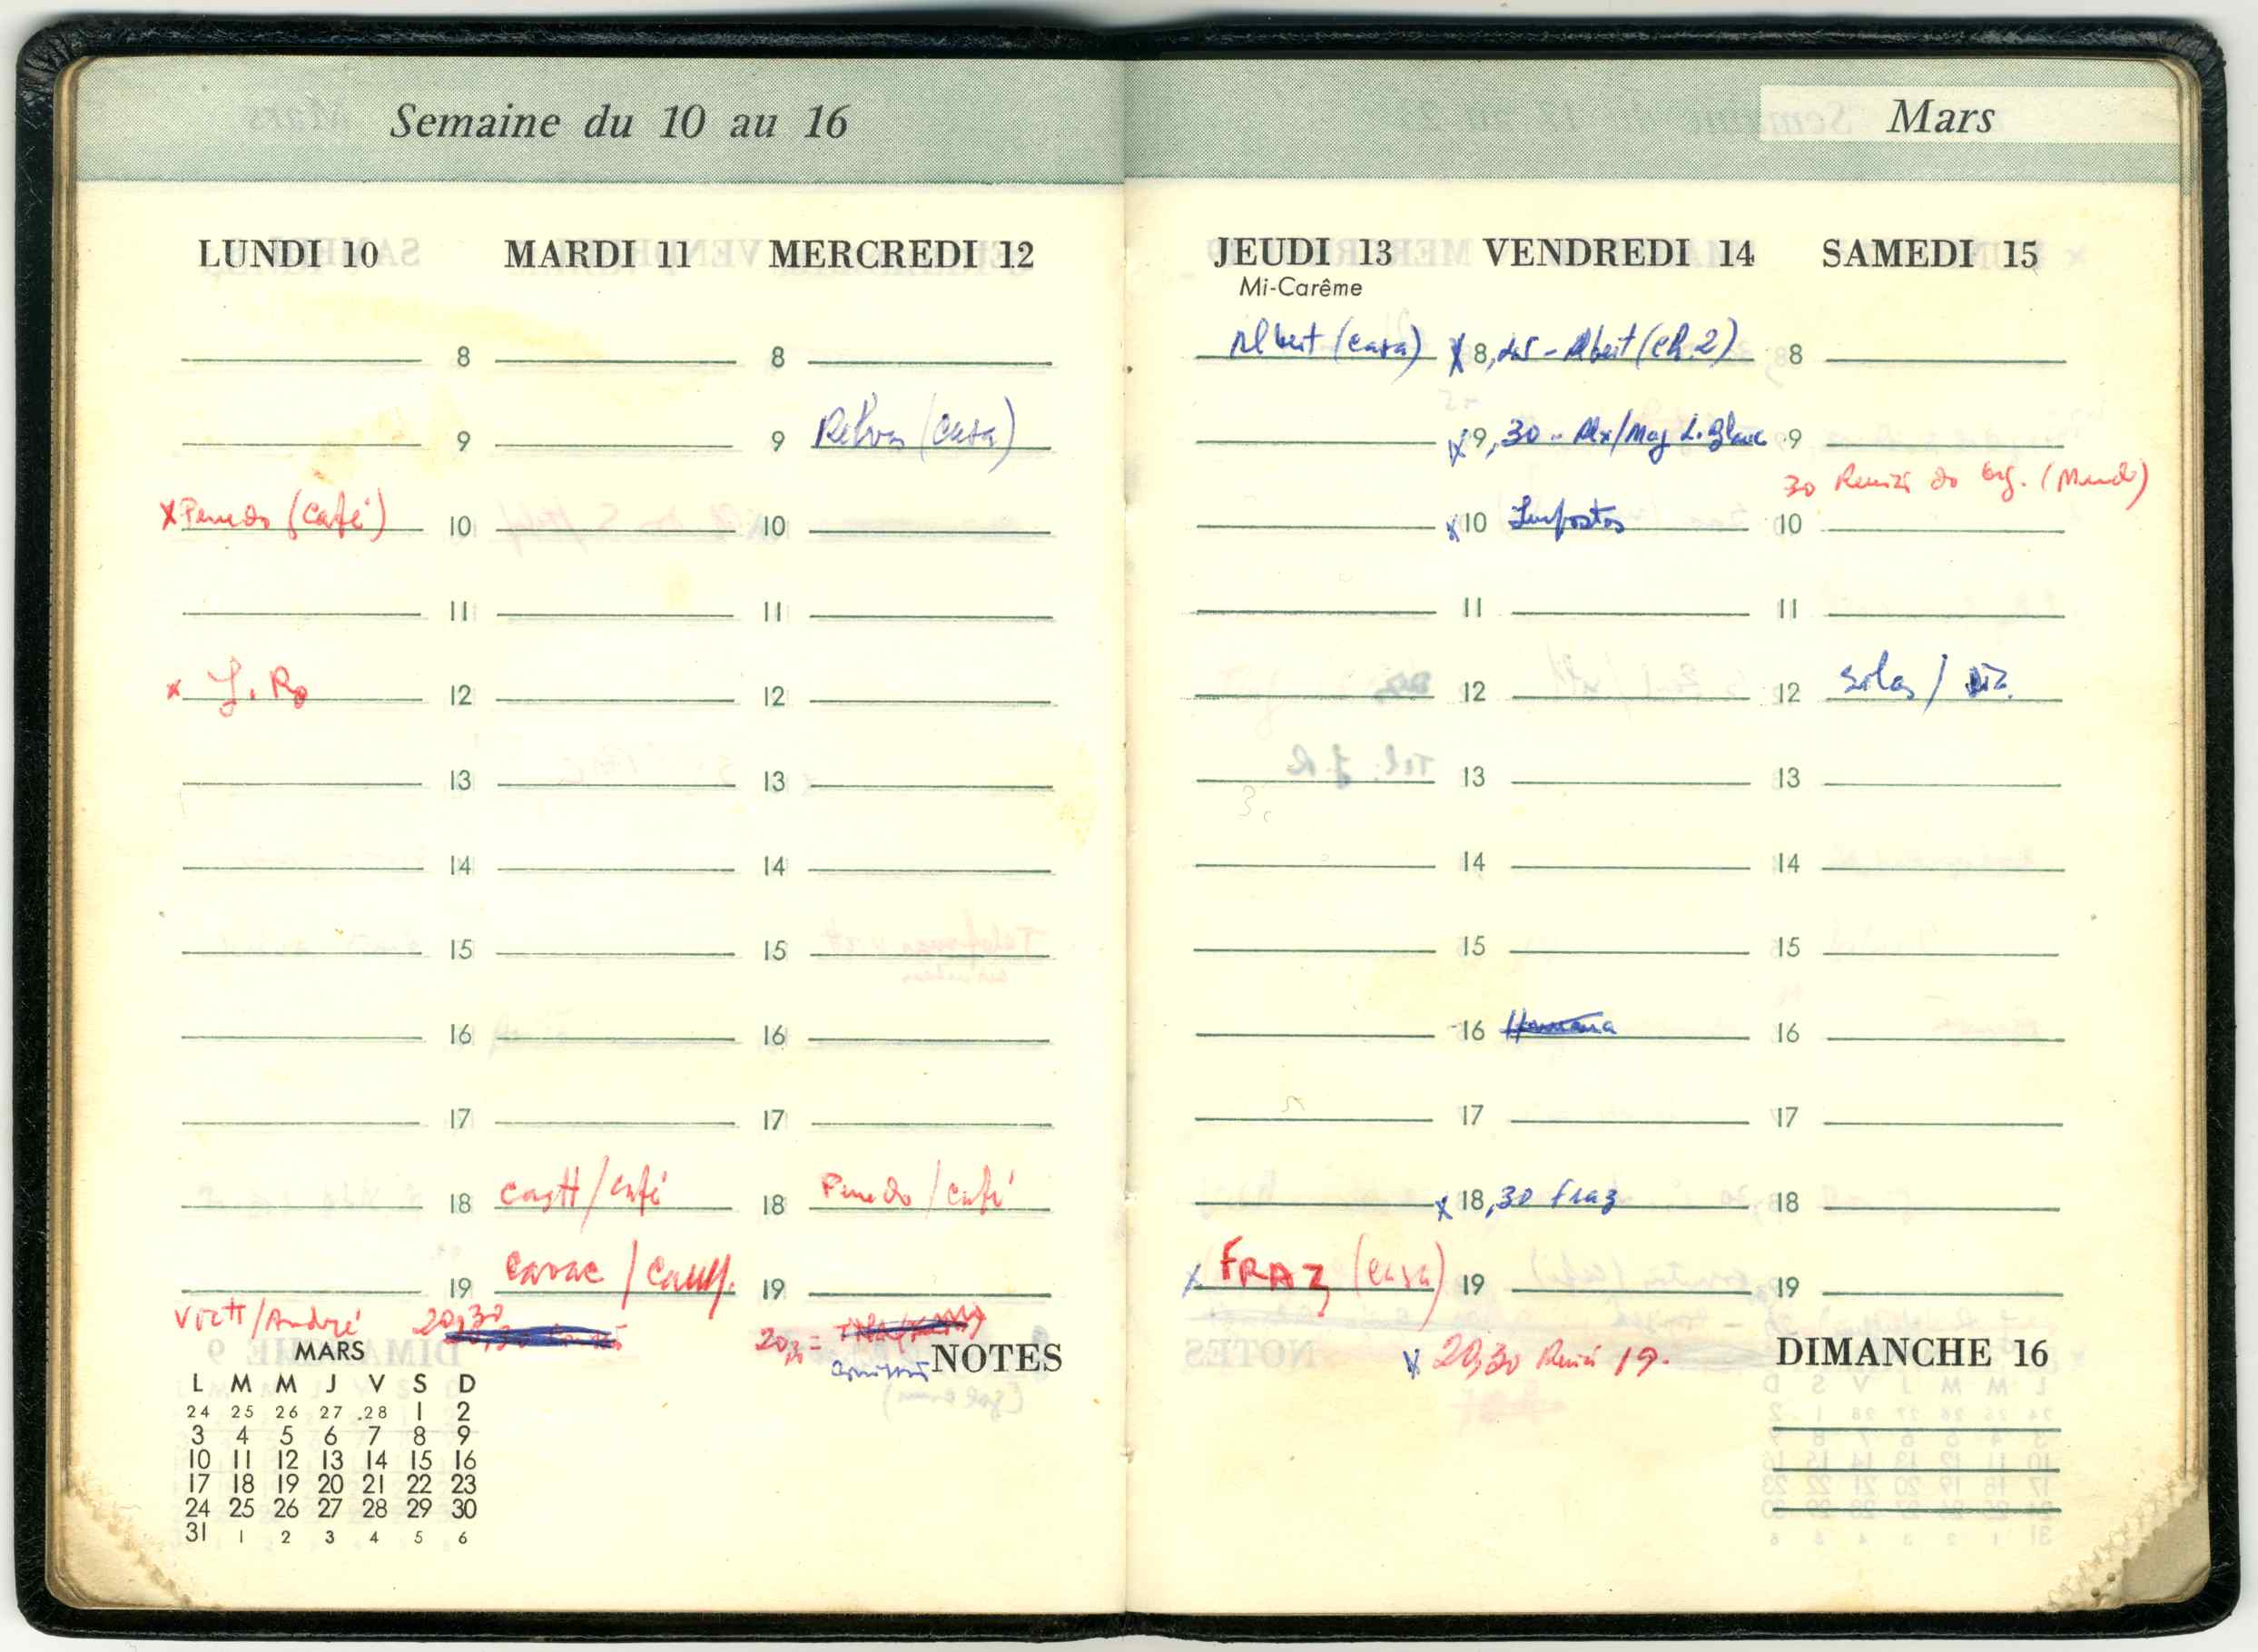 Semaine du 10 au 16
LUNDI 10 MARDI 11 MERCREDI 12
8 8
9 9 (Casa)
x Penedo (Café) 10 10
11 11
x J. Ro 12 12
13 13
14 14
15 15
16 16
17 17
18 Castt/Café 18 Penedo / Café
19 Carac / 19
Victt/André 20,30 20,30 =
NOTES
MARS
L M M J V S D
24 25 26 27 28 1 2
3 4 5 6 7 8 9
10 11 12 13 14 15 16
17 18 19 20 21 22 23
24 25 26 27 28 29 30
31 1 2 3 4 5 6
Mars
JEUDI 13 VENDREDI 14 SAMEDI 15
Mi-Carême
Albert (casa) x 8, - Albert (ch. 2) 8
x 9, 30 - Alx/Mag L. Blanc 9
30 do (Mundo)
x 10 Impostos 10
11 11
12 12 Silas /
13 13
14 14
15 15
16 16
17 17
x 18,30 Fraz 18
x FRAZ (casa) 19 19
x 20,30 19.
DIMANCHE 16